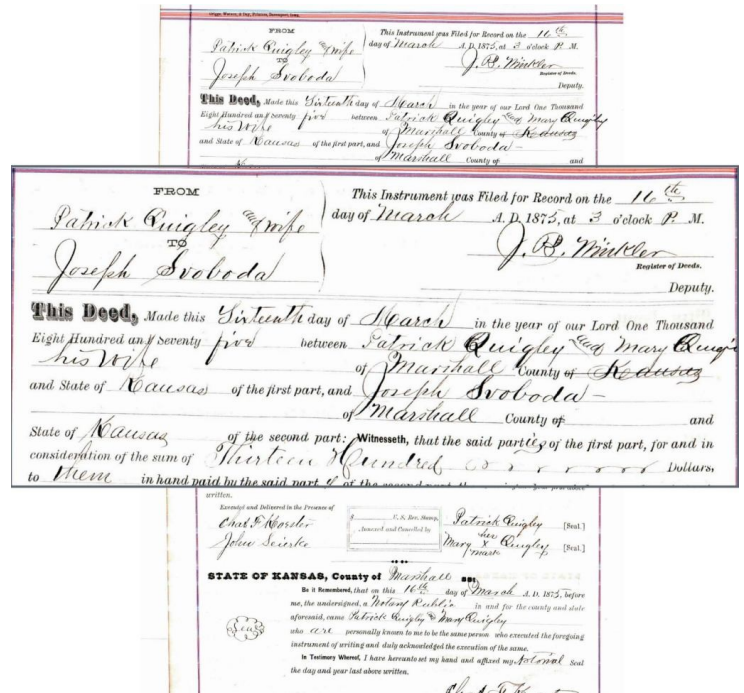 FROM
Patrick Quigley and wife
TO
Joseph Svoboda
This Instrument was Filed for Record on the 16th
day of March A. D. 1875, at 3 o'clock P. M.
J. B. Winkler
Register of Deeds.
Deputy.
This Deed, Made this Sixteenth day of March in the year of our Lord One Thousand
Eight Hundred and Seventy five between Patrick Quigley and Mary Quigley
his Wife of Marshall County of Kansas
and State of Kansas of the first part, and Joseph Svoboda -
of Marshall County of and
FROM
Patrick Quigley and wife
TO
Joseph Svoboda
This Instrument was Filed for Record on the 16th
day of March A. D. 1875, at 3 o'clock P. M.
J. B. Winkler
Register of Deeds.
Deputy.
This Deed, Made this Sixteenth day of March in the year of our Lord One Thousand
Eight Hundred and Seventy five between Patrick Quigley and Mary
his Wife of Marshall County of Kansas
and State of Kansas of the first part, and Joseph Svoboda -
of Marshall County of and
State of Kansas of the second part: Witnesseth, that the said parties of the first part, for and in
consideration of the sum of Thirteen Hundred Dollars,
to them in hand paid by the said part y of the second part
written.
Executed and Delivered in the Presence of
John
$ U. S. Rev. Stamp,
Annexed and Cancelled by
Patrick Quigley [Seal.]
her
Mary X Quigley [Seal.]
mark
STATE OF KANSAS, County of Marshall ss:
Be it Remembered, that on this 16th day of March A. D. 1875, before
me, the undersigned, a Notary Public in and for the county and state
aforesaid, came Patrick Quigley & Mary Quigley
who are personally known to me to be the same person who executed the foregoing
instrument of writing and duly acknowledged the execution of the same.
Seal
In Testimony Whereof, I have hereunto set my hand and affixed my Notorial Seal
the day and year last above written.